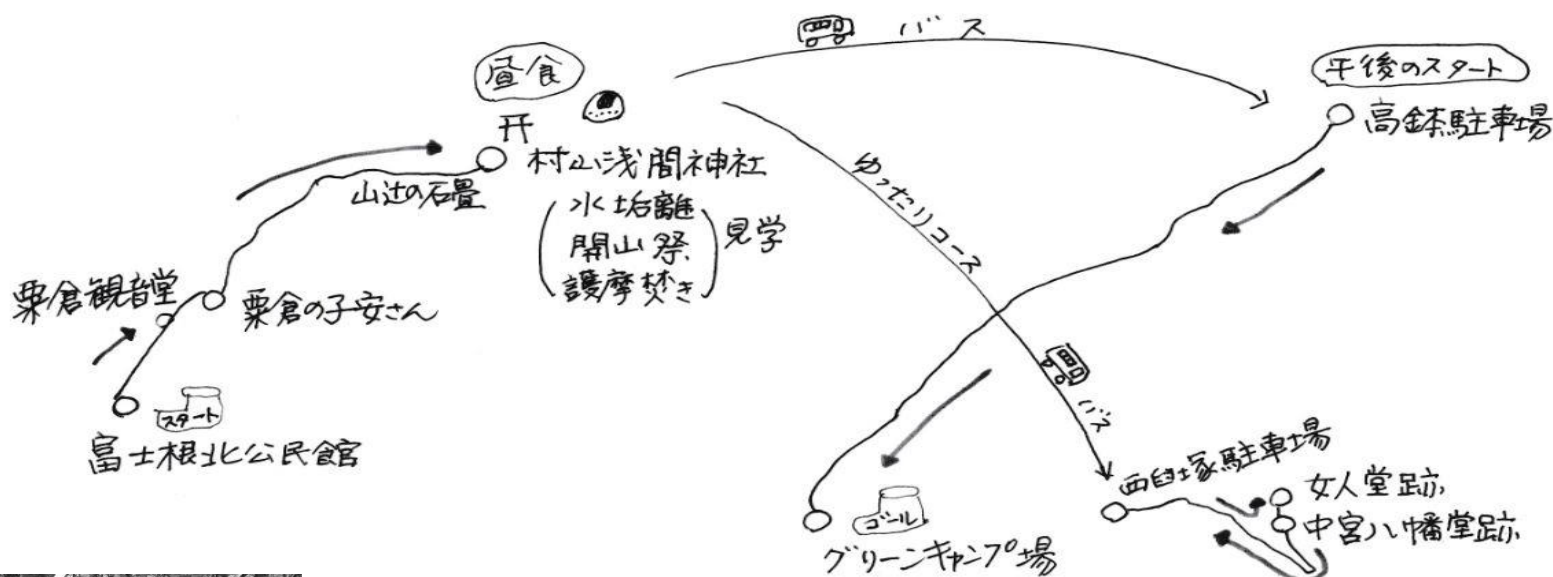 バス
昼食
午後のスタート
高鉢駐車場
村山浅間神社
山辻の石畳
水垢離
開山祭
護摩焚き
見学
ゆったりコース
粟倉観音堂
粟倉の子安さん
スタート
富士根北公民館
バス
西臼塚駐車場
女人堂跡
中宮八幡堂跡
ゴール
グリーンキャンプ場